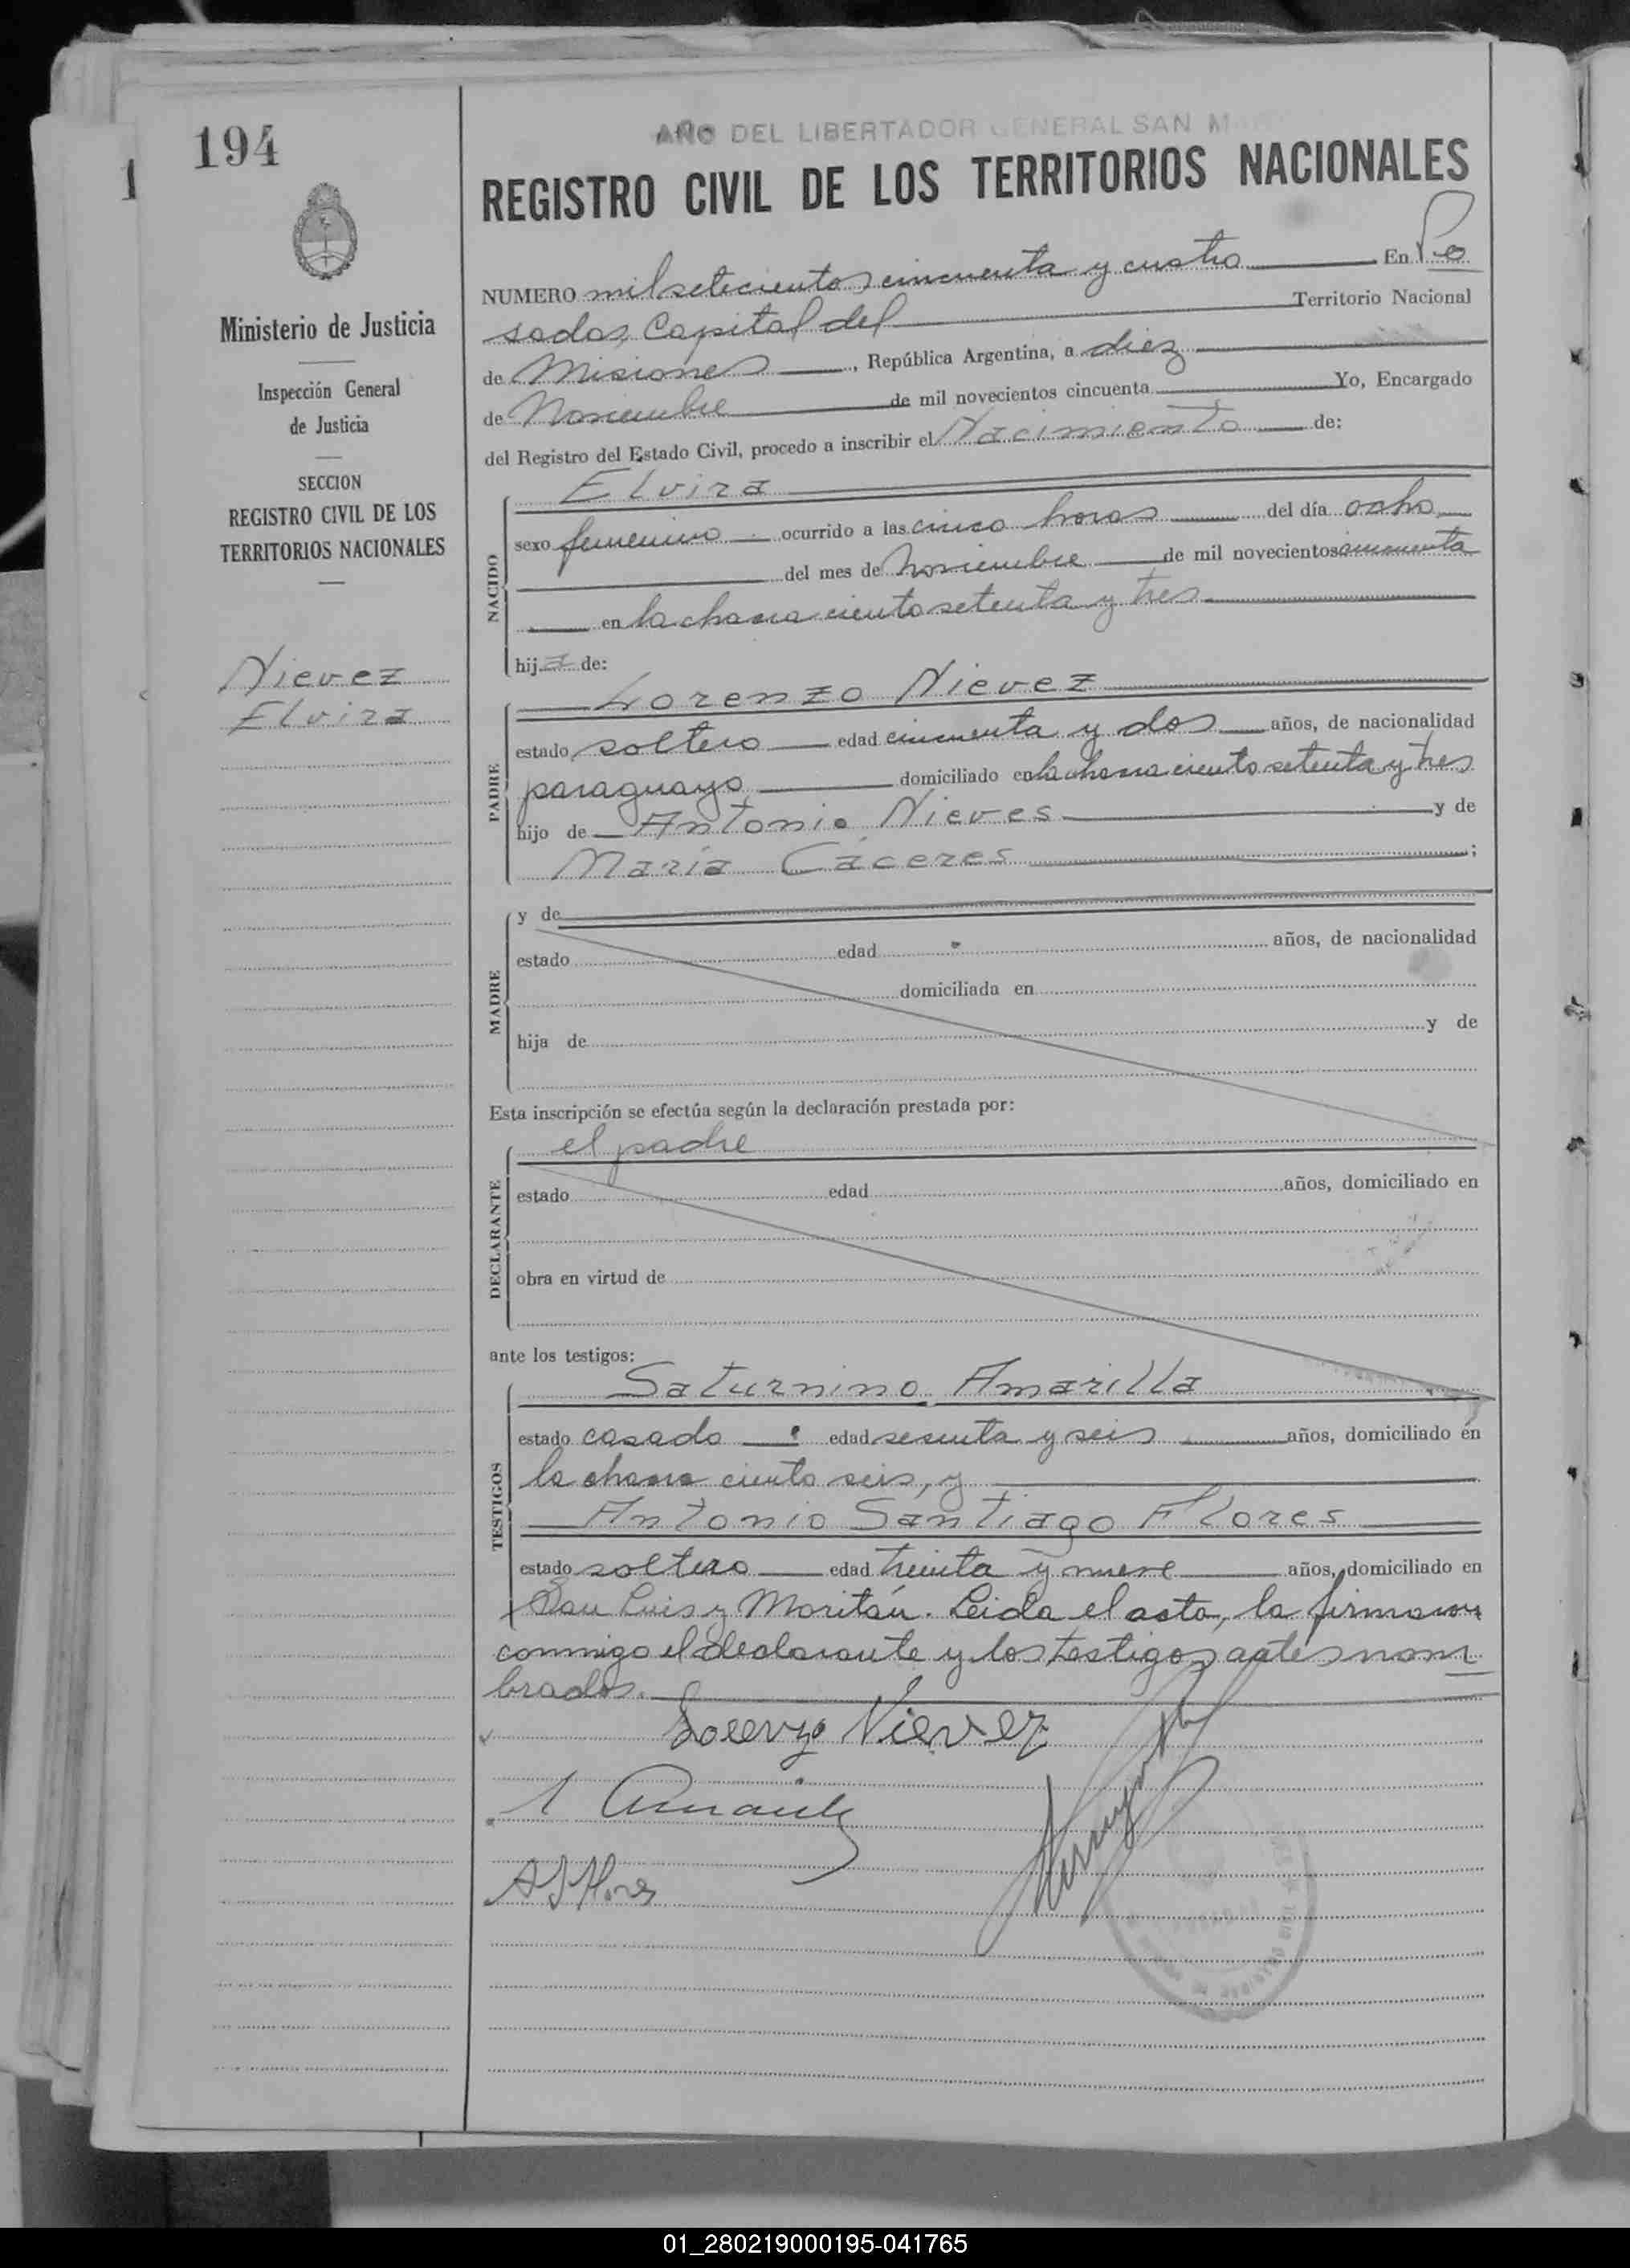 194
AÑO DEL LIBERTADOR GENERAL SAN
REGISTRO CIVIL DE LOS TERRITORIOS NACIONALES
Ministerio de Justicia
Inspección General
de Justicia
SECCION
REGISTRO CIVIL DE LOS
TERRITORIOS NACIONALES
Nievez
Elvira
NUMERO mil setecientos cincuenta y cuatro En Po
sadas, Capital del Territorio Nacional
de Misiones, República Argentina, a diez
de Noviembre de mil novecientos cincuenta Yo, Encargado
del Registro del Estado Civil, procedo a inscribir el Nacimiento de:
NACIDO
Elvira
sexo femenino ocurrido a las cinco horas del día ocho
del mes de Noviembre de mil novecientos cincuenta
en la chacra ciento setenta y tres
hija de:
PADRE
Lorenzo Nievez
estado soltero edad cincuenta y dos años, de nacionalidad
paraguayo domiciliado en la chacra ciento setenta y tres
hijo de Antonio Nieves y de
María Cáceres;
MADRE
y de
estado edad años, de nacionalidad
domiciliada en
hija de y de
Esta inscripción se efectúa según la declaración prestada por:
DECLARANTE
el padre
estado edad años, domiciliado en
obra en virtud de
ante los testigos:
TESTIGOS
Saturnino Amarilla
estado casado edad sesenta y seis años, domiciliado en
la chacra ciento seis, y
Antonio Santiago Flores
estado soltero edad treinta y nueve años, domiciliado en
San Luis y Moritán. Leida el acta, la firmaron
conmigo el declarante y los testigos antes nom
brados.
Lorenzo Nievez
A S Flores
01_280219000195-041765